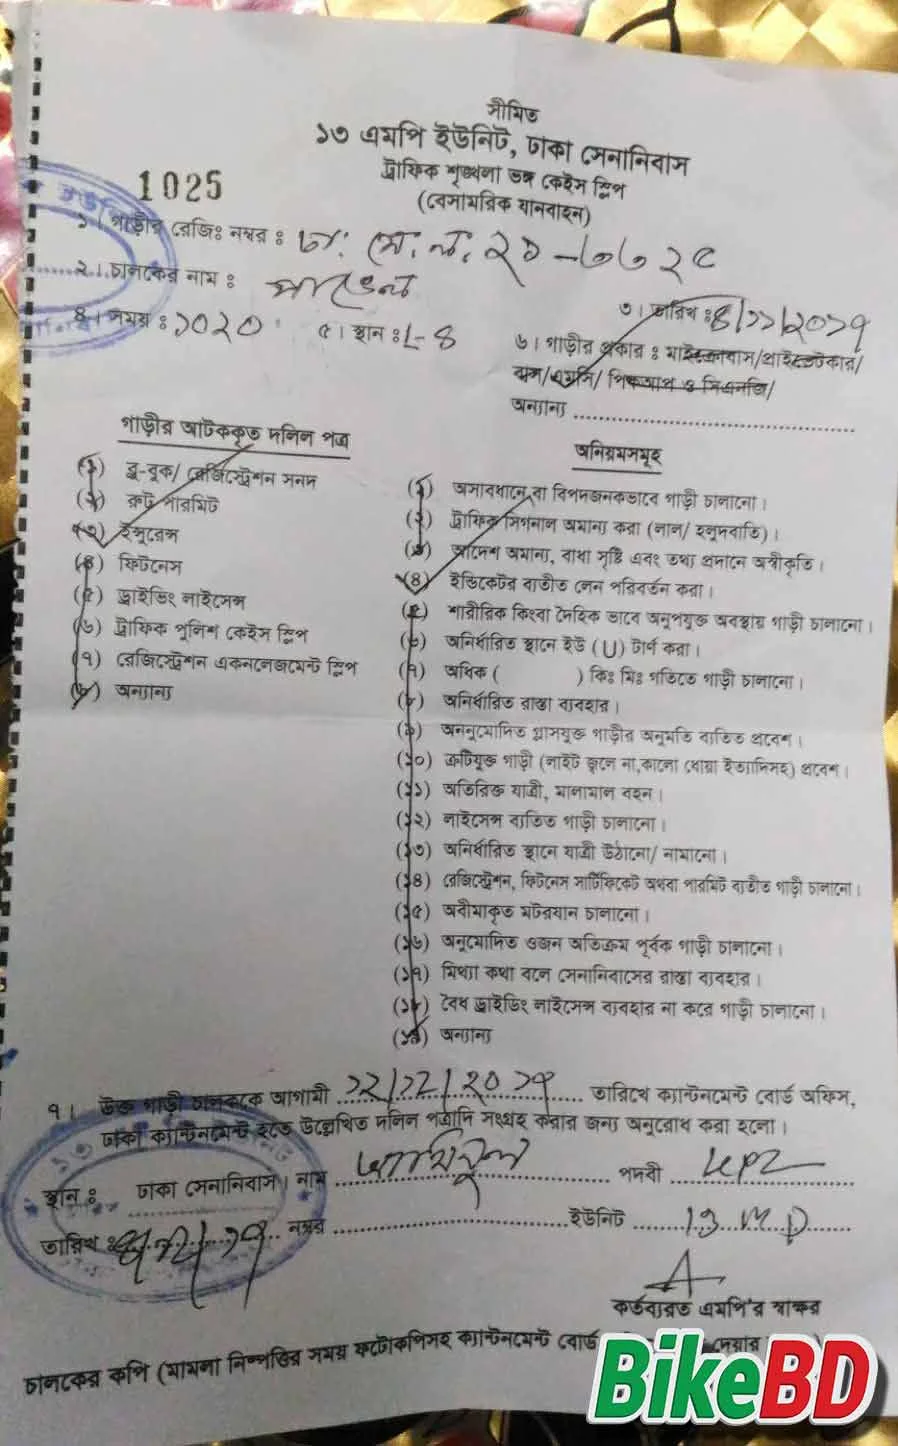 সীমিত
১৩ এমপি ইউনিট, ঢাকা সেনানিবাস
ট্রাফিক শৃঙ্খলা ভঙ্গ কেইস স্লিপ
(বেসামরিক যানবাহন)
1025
১। গাড়ীর রেজিঃ নম্বর :
২। চালকের নাম :
৩। তারিখ :
৪। সময় : ১০২০
৫। স্থান : L-8
৬। গাড়ীর প্রকার : মাইক্রোবাস/প্রাইভেটকার/
বাস/এমসি/ পিকআপ ও সিএনজি/
অন্যান্য
গাড়ীর আটককৃত দলিল পত্র
(১) ব্লু-বুক/ রেজিস্ট্রেশন সনদ
(২) রুট পারমিট
(৩) ইন্সুরেন্স
(৪) ফিটনেস
(৫) ড্রাইভিং লাইসেন্স
(৬) ট্রাফিক পুলিশ কেইস স্লিপ
(৭) রেজিস্ট্রেশন একনলেজমেন্ট স্লিপ
(৮) অন্যান্য
অনিয়মসমূহ
(১) অসাবধানে বা বিপদজনকভাবে গাড়ী চালানো।
(২) ট্রাফিক সিগনাল অমান্য করা (লাল/ হলুদবাতি)।
(৩) আদেশ অমান্য, বাধা সৃষ্টি এবং তথ্য প্রদানে অস্বীকৃতি।
(৪) ইন্ডিকেটর ব্যতীত লেন পরিবর্তন করা।
(৫) শারীরিক কিংবা দৈহিক ভাবে অনুপযুক্ত অবস্থায় গাড়ী চালানো।
(৬) অনির্ধারিত স্থানে ইউ (U) টার্ণ করা।
(৭) অধিক ( ) কিঃ মিঃ গতিতে গাড়ী চালানো।
(৮) অনির্ধারিত রাস্তা ব্যবহার।
(৯) অননুমোদিত গ্লাসযুক্ত গাড়ীর অনুমতি ব্যতিত প্রবেশ।
(১০) ত্রুটিযুক্ত গাড়ী (লাইট জ্বলে না,কালো ধোয়া ইত্যাদিসহ) প্রবেশ।
(১১) অতিরিক্ত যাত্রী, মালামাল বহন।
(১২) লাইসেন্স ব্যতিত গাড়ী চালানো।
(১৩) অনির্ধারিত স্থানে যাত্রী উঠানো/ নামানো।
(১৪) রেজিস্ট্রেশন, ফিটনেস সার্টিফিকেট অথবা পারমিট ব্যতীত গাড়ী চালানো।
(১৫) অবীমাকৃত মটরযান চালানো।
(১৬) অনুমোদিত ওজন অতিক্রম পূর্বক গাড়ী চালানো।
(১৭) মিথ্যা কথা বলে সেনানিবাসের রাস্তা ব্যবহার।
(১৮) বৈধ ড্রাইভিং লাইসেন্স ব্যবহার না করে গাড়ী চালানো।
(১৯) অন্যান্য
৭। উক্ত গাড়ী চালককে আগামী ১২/১২/২০১৭ তারিখে ক্যান্টনমেন্ট বোর্ড অফিস,
ঢাকা ক্যান্টনমেন্ট হতে উল্লেখিত দলিল পত্রাদি সংগ্রহ করার জন্য অনুরোধ করা হলো।
স্থান : ঢাকা সেনানিবাস। নাম পদবী
তারিখ : নম্বর ইউনিট
কর্তব্যরত এমপি'র স্বাক্ষর
চালকের কপি (মামলা নিষ্পত্তির সময় ফটোকপিসহ ক্যান্টনমেন্ট বোর্ড
BikeBD